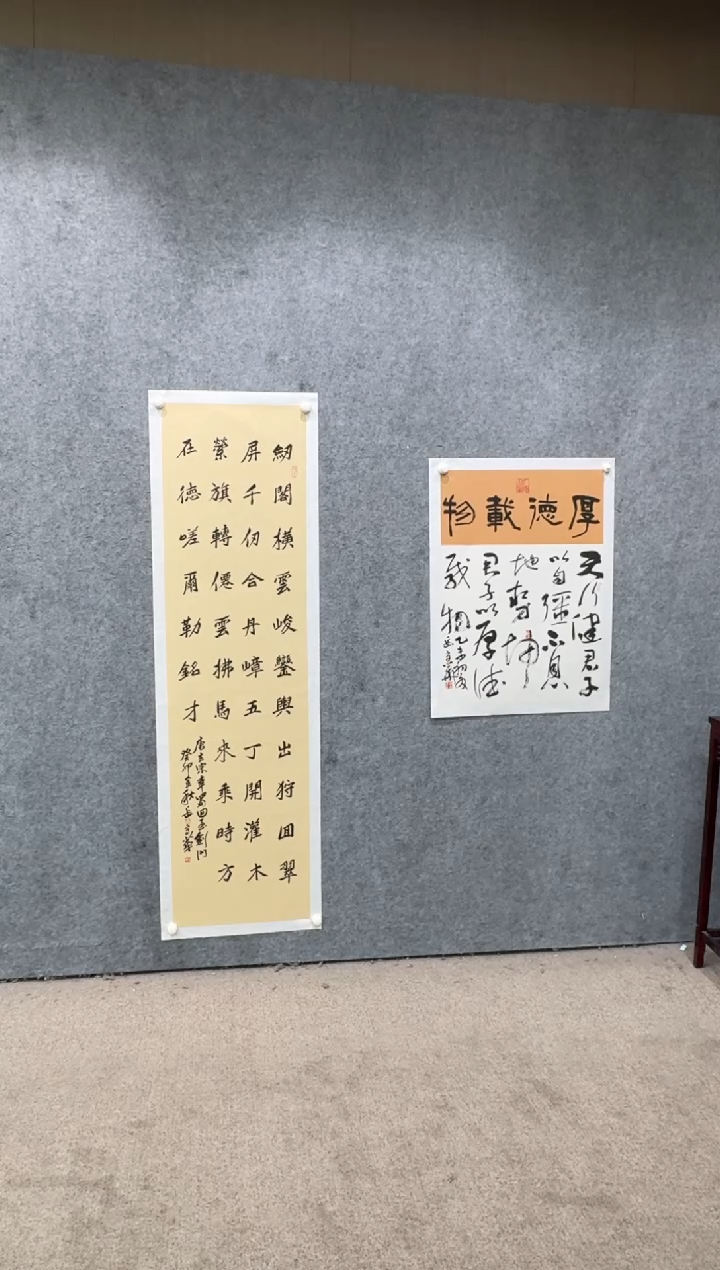 劒閣橫雲峻鑾輿出狩回翠
屏千仞合丹嶂五丁開灌木
縈旗轉僊雲拂馬來乘時方
在德嗟爾勒銘才
唐玄宗幸蜀回至劍門
癸卯金秋
厚德載物
天行健君子
以自彊不息
地勢坤
君子以厚德
載物